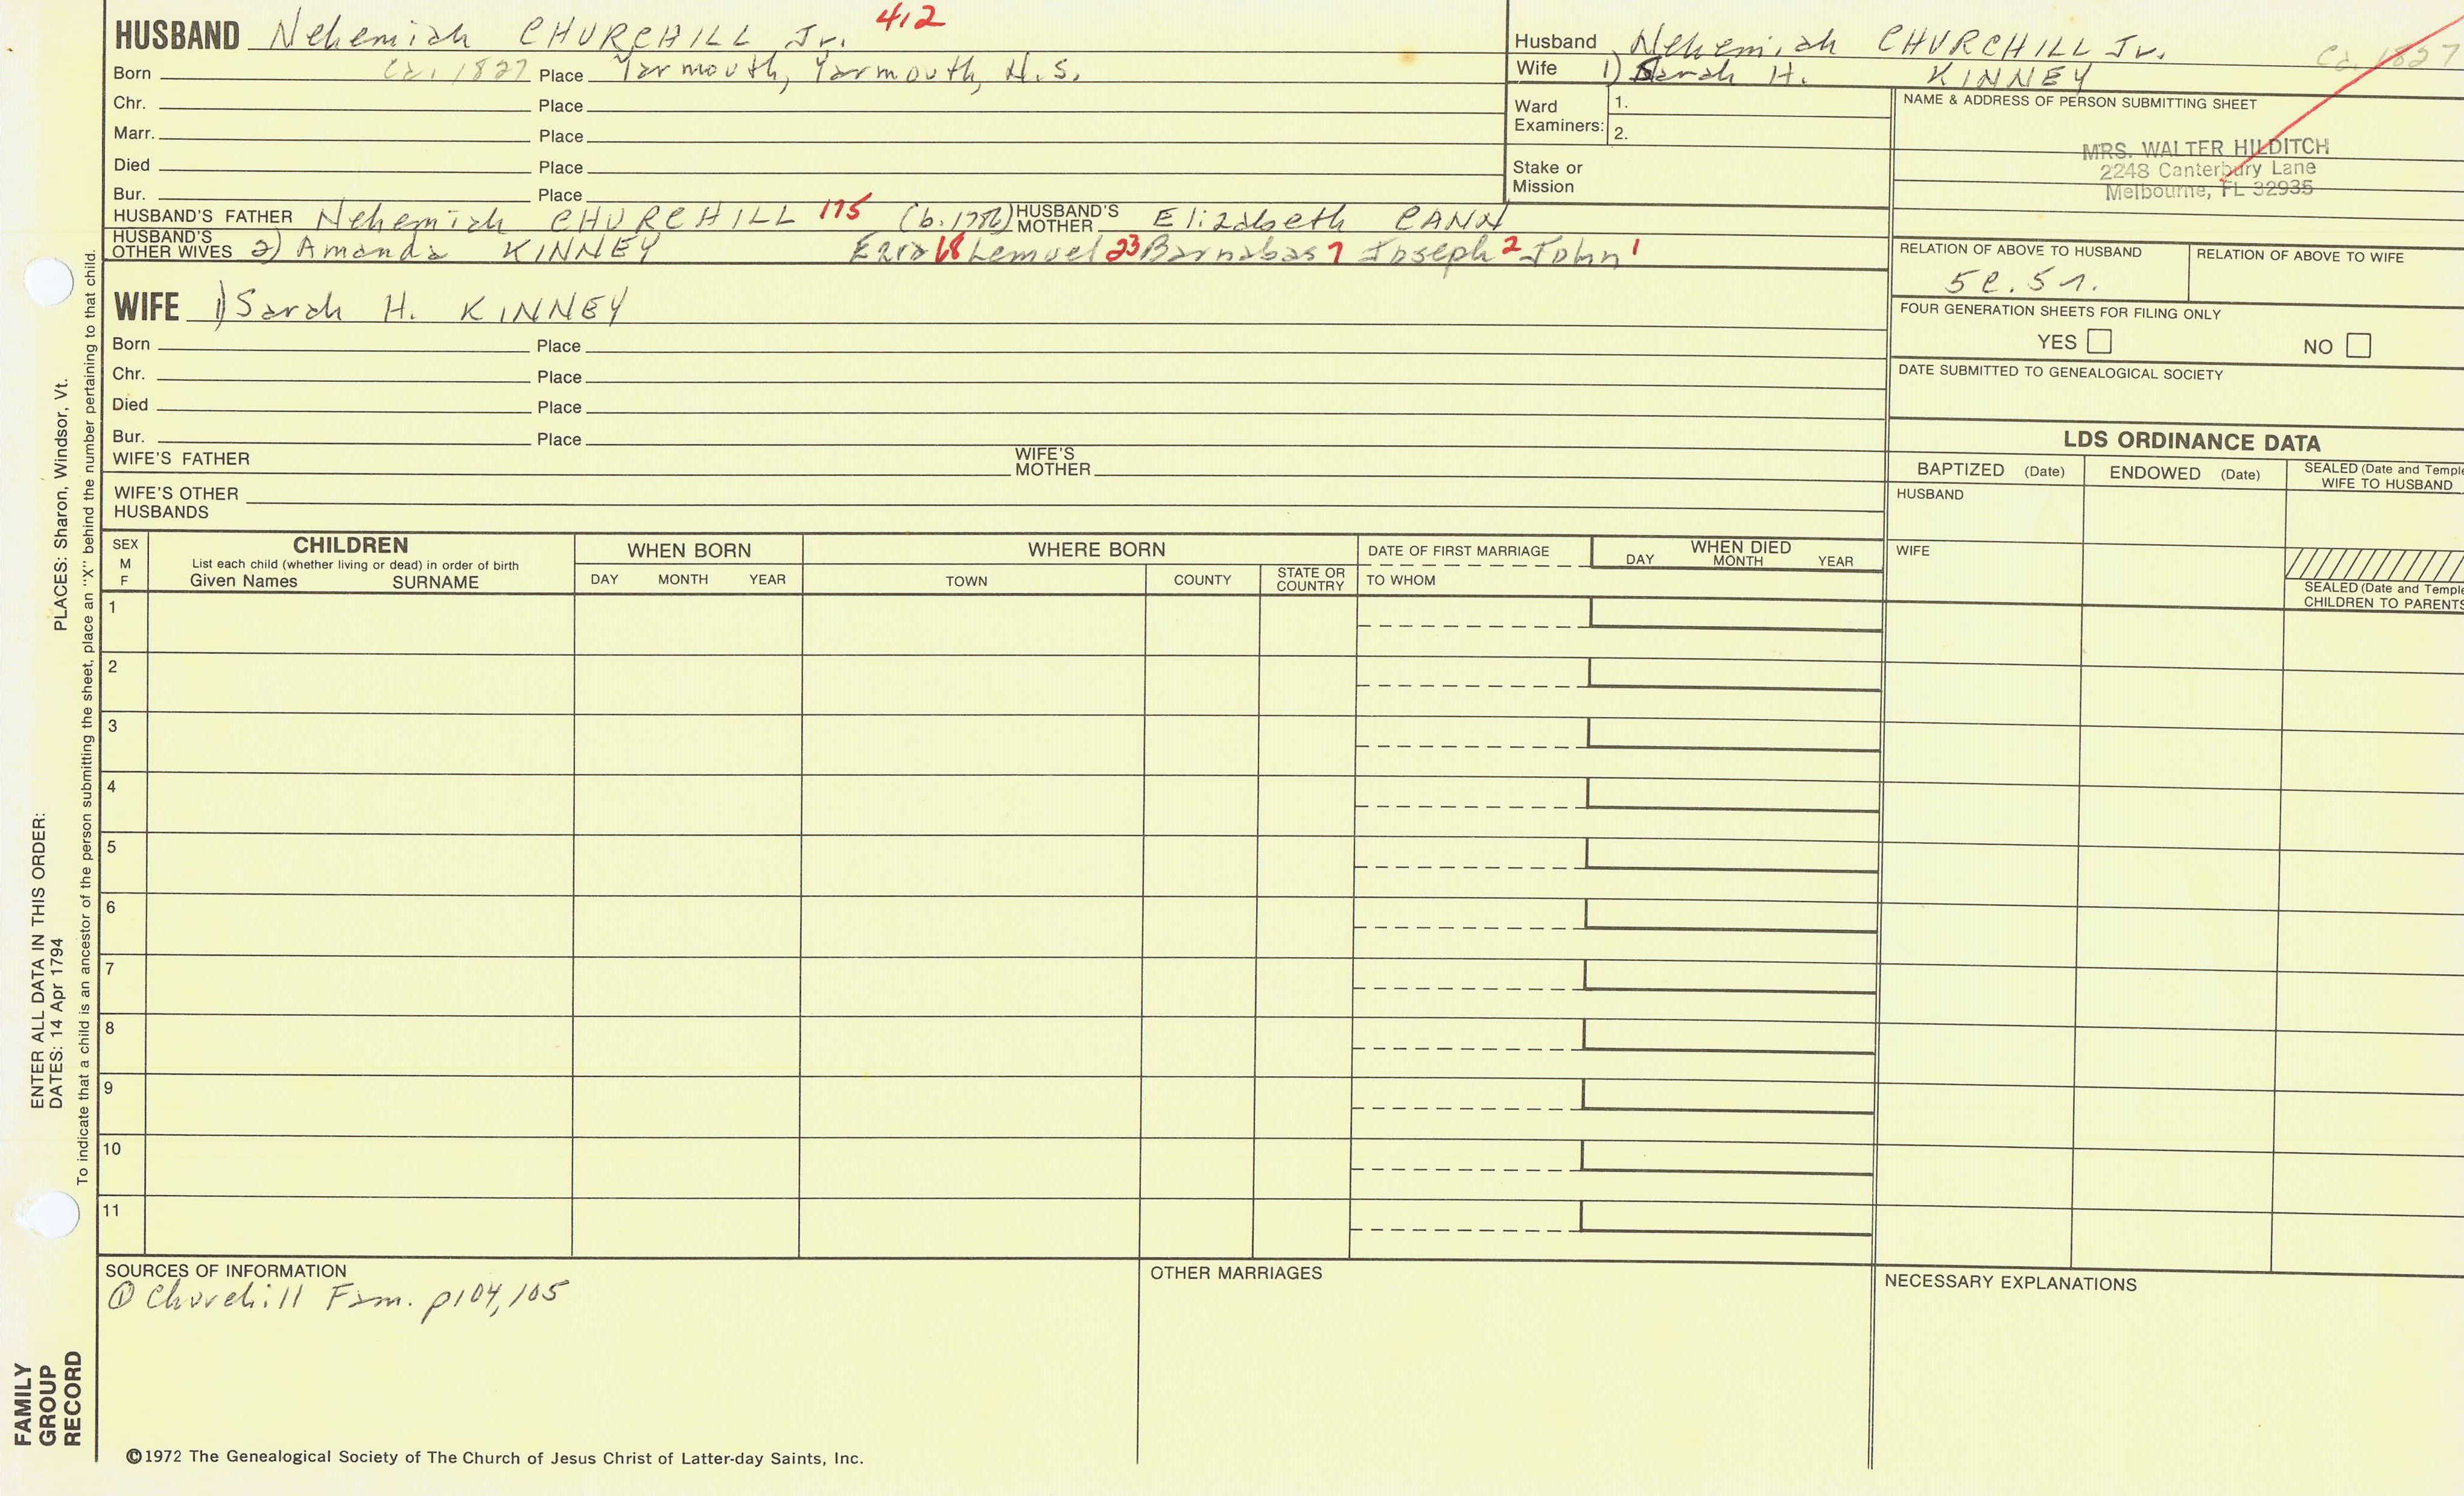 HUSBAND Nehemiah CHURCHILL Jr. 412
Born Ca. 1827 Place Yarmouth, Yarmouth, N.S.
Chr. Place
Marr. Place
Died Place
Bur. Place
HUSBAND'S FATHER Nehemiah CHURCHILL 175 (b. 1786) HUSBAND'S MOTHER Elizabeth CANN
HUSBAND'S OTHER WIVES 2) Amanda KINNEY Ezra 68 Lemuel 23 Barnabas 7 Joseph 2 John 1
WIFE 1) Sarah H. KINNEY
Born Place
Chr. Place
Died Place
Bur. Place
WIFE'S FATHER WIFE'S MOTHER
WIFE'S OTHER HUSBANDS
Husband Nehemiah CHURCHILL Jr. Ca. 1827
Wife 1) Sarah H. KINNEY
Ward Examiners: 1.
2.
Stake or Mission
NAME & ADDRESS OF PERSON SUBMITTING SHEET
MRS. WALTER HILDITCH
2248 Canterbury Lane
Melbourne, FL 32935
RELATION OF ABOVE TO HUSBAND RELATION OF ABOVE TO WIFE
5c.5r.
FOUR GENERATION SHEETS FOR FILING ONLY
YES NO
DATE SUBMITTED TO GENEALOGICAL SOCIETY
LDS ORDINANCE DATA
BAPTIZED (Date) ENDOWED (Date) SEALED (Date and Temple
WIFE TO HUSBAND
HUSBAND
WIFE
SEALED (Date and Temple
CHILDREN TO PARENTS
SEX M F
CHILDREN
List each child (whether living or dead) in order of birth
Given Names SURNAME
WHEN BORN
DAY MONTH YEAR
WHERE BORN
TOWN COUNTY STATE OR COUNTRY
DATE OF FIRST MARRIAGE
TO WHOM
WHEN DIED
DAY MONTH YEAR
1
2
3
4
5
6
7
8
9
10
11
SOURCES OF INFORMATION
① Churchill Fam. p104,105
OTHER MARRIAGES
NECESSARY EXPLANATIONS
©1972 The Genealogical Society of The Church of Jesus Christ of Latter-day Saints, Inc.
FAMILY
GROUP
RECORD
ENTER ALL DATA IN THIS ORDER:
DATES: 14 Apr 1794
PLACES: Sharon, Windsor, Vt.
To indicate that a child is an ancestor of the person submitting the sheet, place an "X" behind the number pertaining to that child.